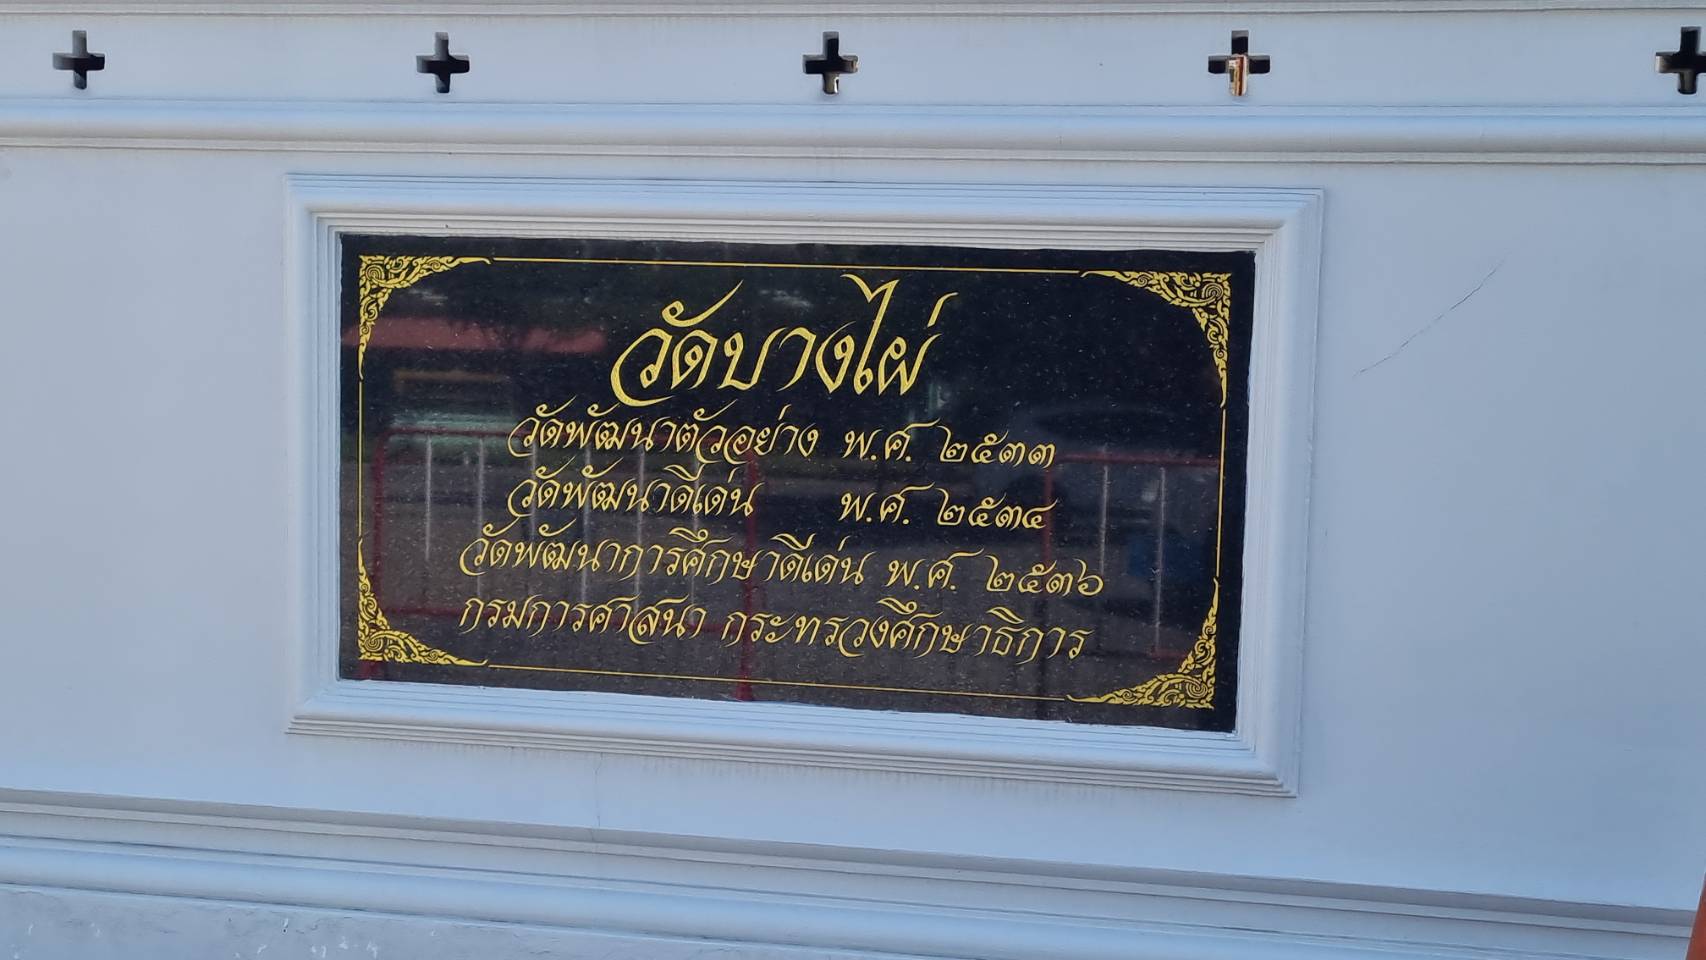 วัดบางไผ่
วัดพัฒนาตัวอย่าง พ.ศ. ๒๕๓๓
วัดพัฒนาดีเด่น พ.ศ. ๒๕๓๔
วัดพัฒนาการศึกษาดีเด่น พ.ศ. ๒๕๓๖
กรมการศาสนา กระทรวงศึกษาธิการ